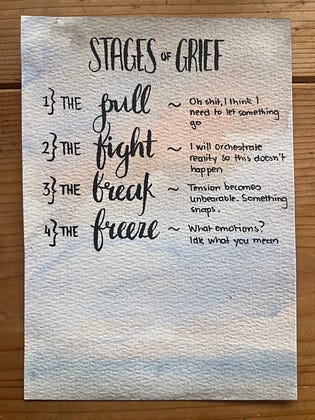 STAGES OF GRIEF
1} THE pull ~ Oh shit, I think I
need to let something
go
2} THE fight ~ I will orchestrate
reality so this doesn't
happen
3} THE break ~ Tension becomes
unbearable. Something
snaps.
4} THE freeze ~ What emotions?
Idk what you mean